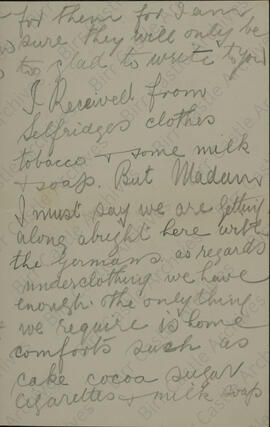 for them for I am
sure they will only be
too glad to write to you
I Received from
Selfridges clothes
tobacco + some milk
+ soap. But Madam
I must say we are getting
along alright here with
the germans as regards
underclothing we have
enough the only thing
we require is home
comforts such as
cake cocoa sugar
cigarettes + milk soap